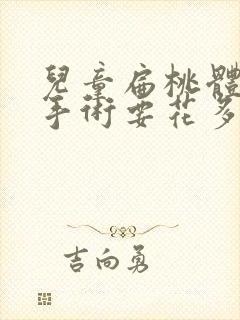 兒童扁桃體
手術要花多
吉向勇